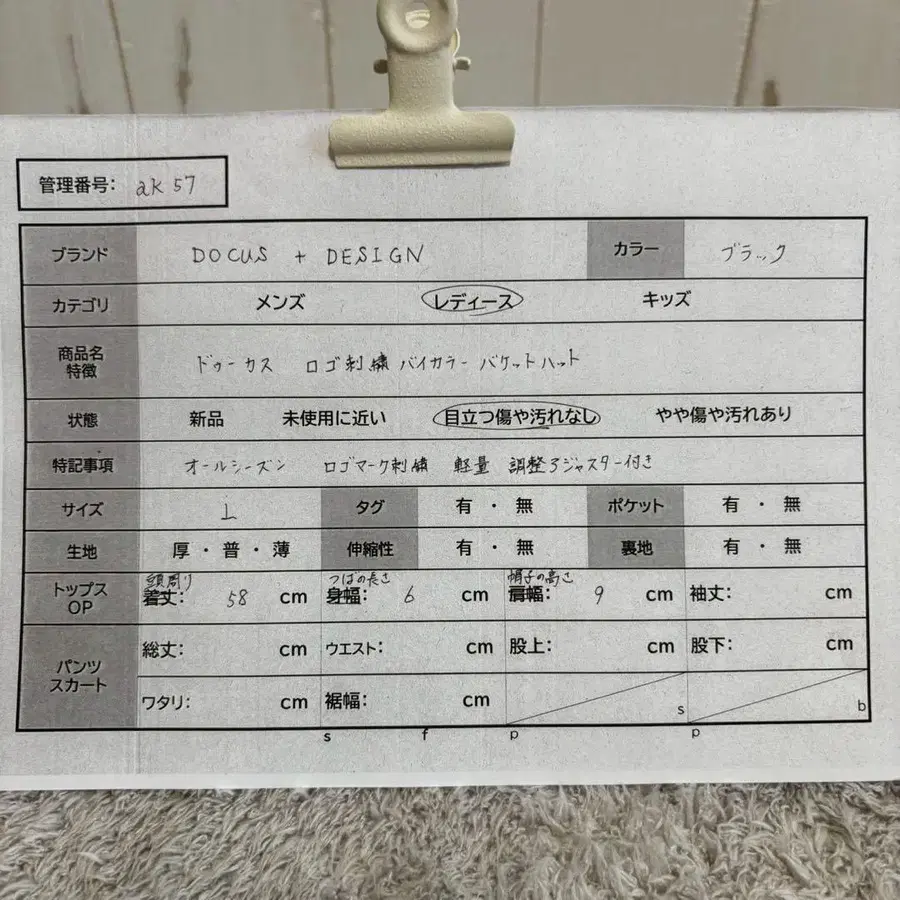 管理番号: aK 57
ブランド DOCUS + DESIGN カラー ブラック
カテゴリ メンズ レディース キッズ
商品名 特徴 ドゥーカス ロゴ刺繍 バイカラー バケットハット
状態 新品 未使用に近い 目立つ傷や汚れなし やや傷や汚れあり
特記事項 オールシーズン ロゴマーク刺繍 軽量 調整アジャスター付き
サイズ L タグ 有・無 ポケット 有・無
生地 厚・普・薄 伸縮性 有・無 裏地 有・無
頭周り つばの長さ 帽子の高さ
トップス OP 着丈: 58 cm 身幅: 6 cm 肩幅: 9 cm 袖丈: cm
パンツ スカート 総丈: cm ウエスト: cm 股上: cm 股下: cm
ワタリ: cm 裾幅: cm s b
s f p p